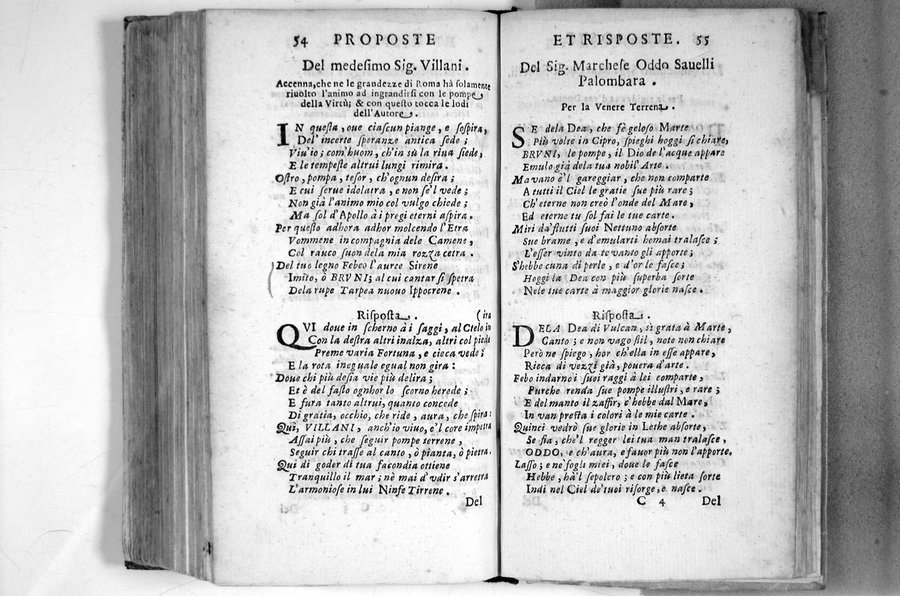 54 PROPOSTE
Del medesimo Sig. Villani.
Accenna, che ne le grandezze di Roma hà solamente
riuolto l'animo ad ingrandirsi con le pompe
della Virtù; & con questo tocca le lodi
dell'Autore.
IN questa, oue ciascun piange, e sospira,
Del'incerte speranze antica sede;
Viu'io; com'huom, ch'in sù la riua siede,
E le tempeste altrui lungi rimira.
Ostro, pompa, tesor, ch'ognun desira;
E cui serue idolatra, e non se'l vede;
Non già l'animo mio col vulgo chiede;
Ma sol d'Apollo à i pregi eterni aspira.
Per questo adhora adhor molcendo l'Etra
Vommene in compagnia dele Camene,
Col rauco suon dela mia rozza cetra.
Del tuo legno Febeo l'auree Sirene
Imito, ò BRVNI; al cui cantar si spetra
Dela rupe Tarpea nuouo Ippocrene.
Risposta.
(ira
QVI doue in scherno à i saggi, al Cielo in
Con la destra altri inalza, altri col piede
Preme varia Fortuna, e cieca vede;
E la rota ineguale egual non gira:
Doue chi più desia vie più delira;
Et è del fasto ognhor lo scorno herede;
E fura tanto altrui, quanto concede
Di gratia, occhio, che ride, aura, che spira:
Qui, VILLANI, anch'io viuo, e'l core impetra
Assai più, che seguir pompe terrene,
Seguir chi trasse al canto, ò pianta, ò pietra.
Qui di goder di tua facondia ottiene
Tranquillo il mar; nè mai d'vdir s'arretra
L'armoniose in lui Ninfe Tirrene.
Del
ET RISPOSTE. 55
Del Sig. Marchese Oddo Sauelli
Palombara.
Per la Venere Terrena.
SE dela Dea, che fè geloso Marte
Più volte in Cipro, spieghi hoggi sì chiare,
BRVNI, le pompe, il Dio de l'acque appare
Emulo già dela tua nobil'Arte.
Ma vano è'l gareggiar, che non comparte
A tutti il Ciel le gratie sue più rare;
Ch'eterne non creò l'onde del Mare,
Ed eterne tu sol fai le tue carte.
Miri da'flutti suoi Nettuno absorte
Sue brame, e d'emularti homai tralasce;
L'esser vinto da te vanto gli apporte;
S'hebbe cuna di perle, e d'or le fasce;
Hoggi la Dea con più superba sorte
Nele tue carte à maggior glorie nasce.
Risposta.
DELA Dea di Vulcan, sì grata à Marte,
Canto; e non vago stil, note non chiare
Però ne spiego, hor ch'ella in esse appare,
Ricca di vezzi già, pouera d'arte.
Febo indarno i suoi raggi à lei comparte,
Purche renda sue pompe illustri, e rare;
E del manto il zaffir, c'hebbe dal Mare,
In van presta i colori à le mie carte.
Quinci vedrò sue glorie in Lethe absorte,
Se fia, che'l regger lei tua man tralasce,
ODDO, e ch'aura, e fauor più non l'apporte.
Lasso; e ne'fogli miei, doue le fasce
Hebbe, hà'l sepolcro; e con più lieta sorte
Indi nel Ciel de'tuoi risorge, e nasce.
C 4 Del